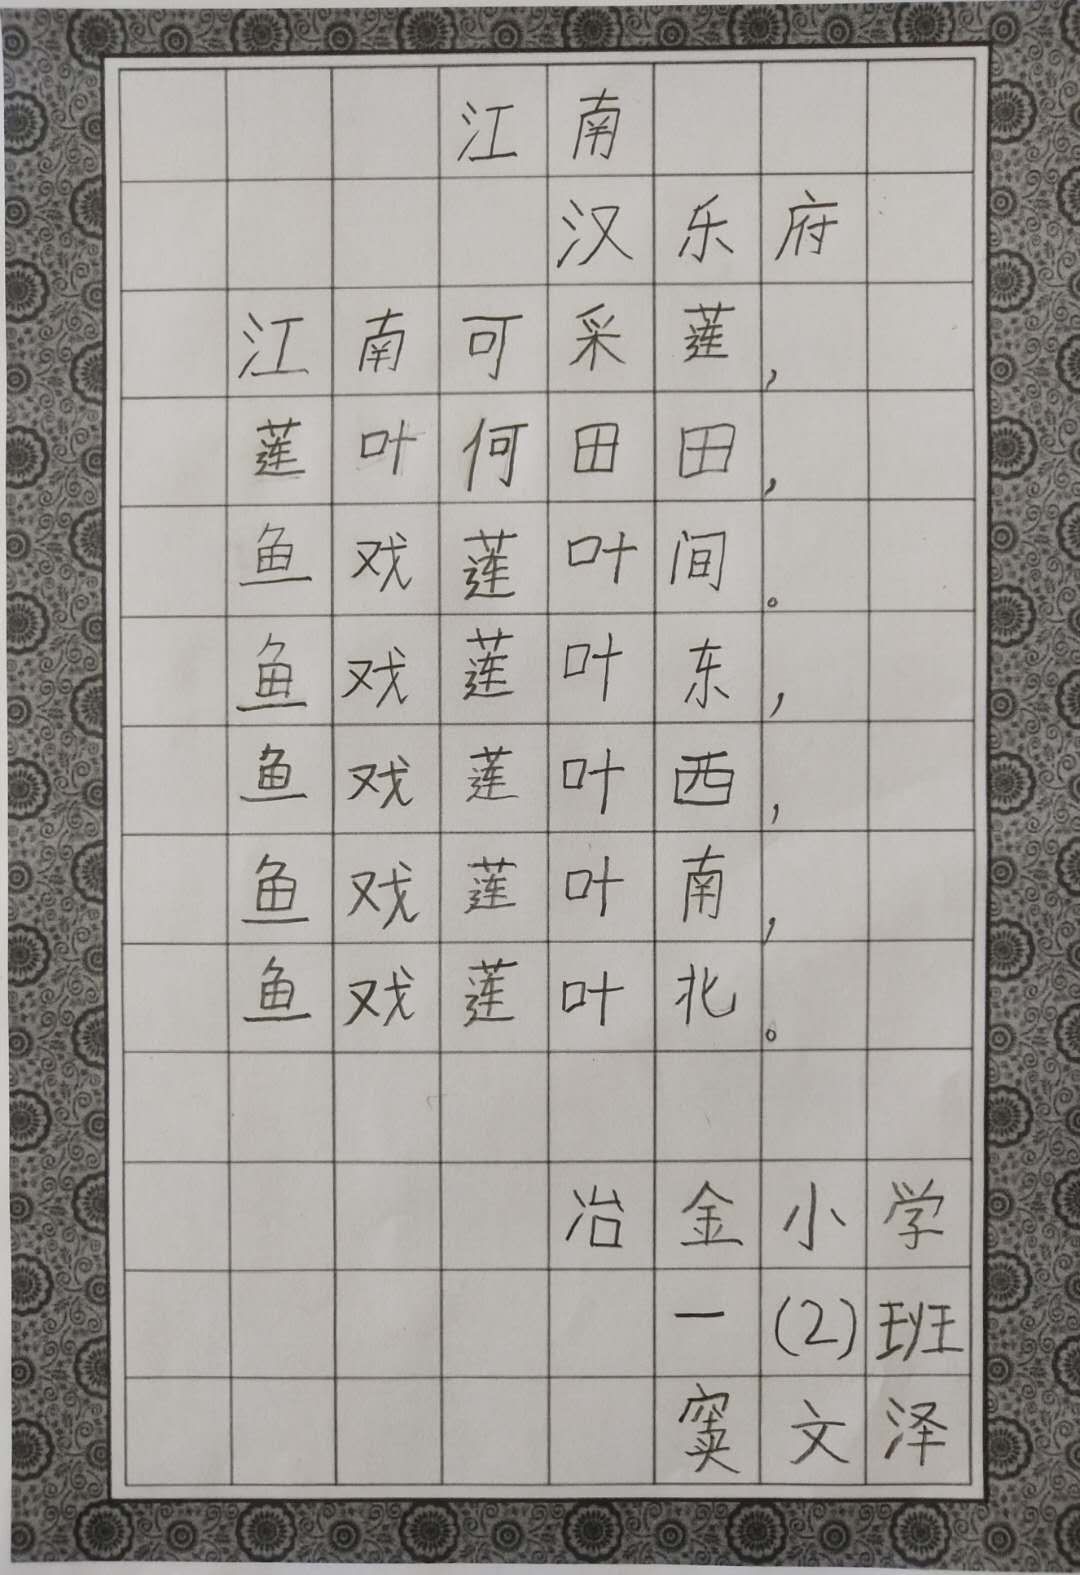 江南
汉乐府
江南可采莲，
莲叶何田田，
鱼戏莲叶间。
鱼戏莲叶东，
鱼戏莲叶西，
鱼戏莲叶南，
鱼戏莲叶北。
冶金小学
一(2)班
窦文泽